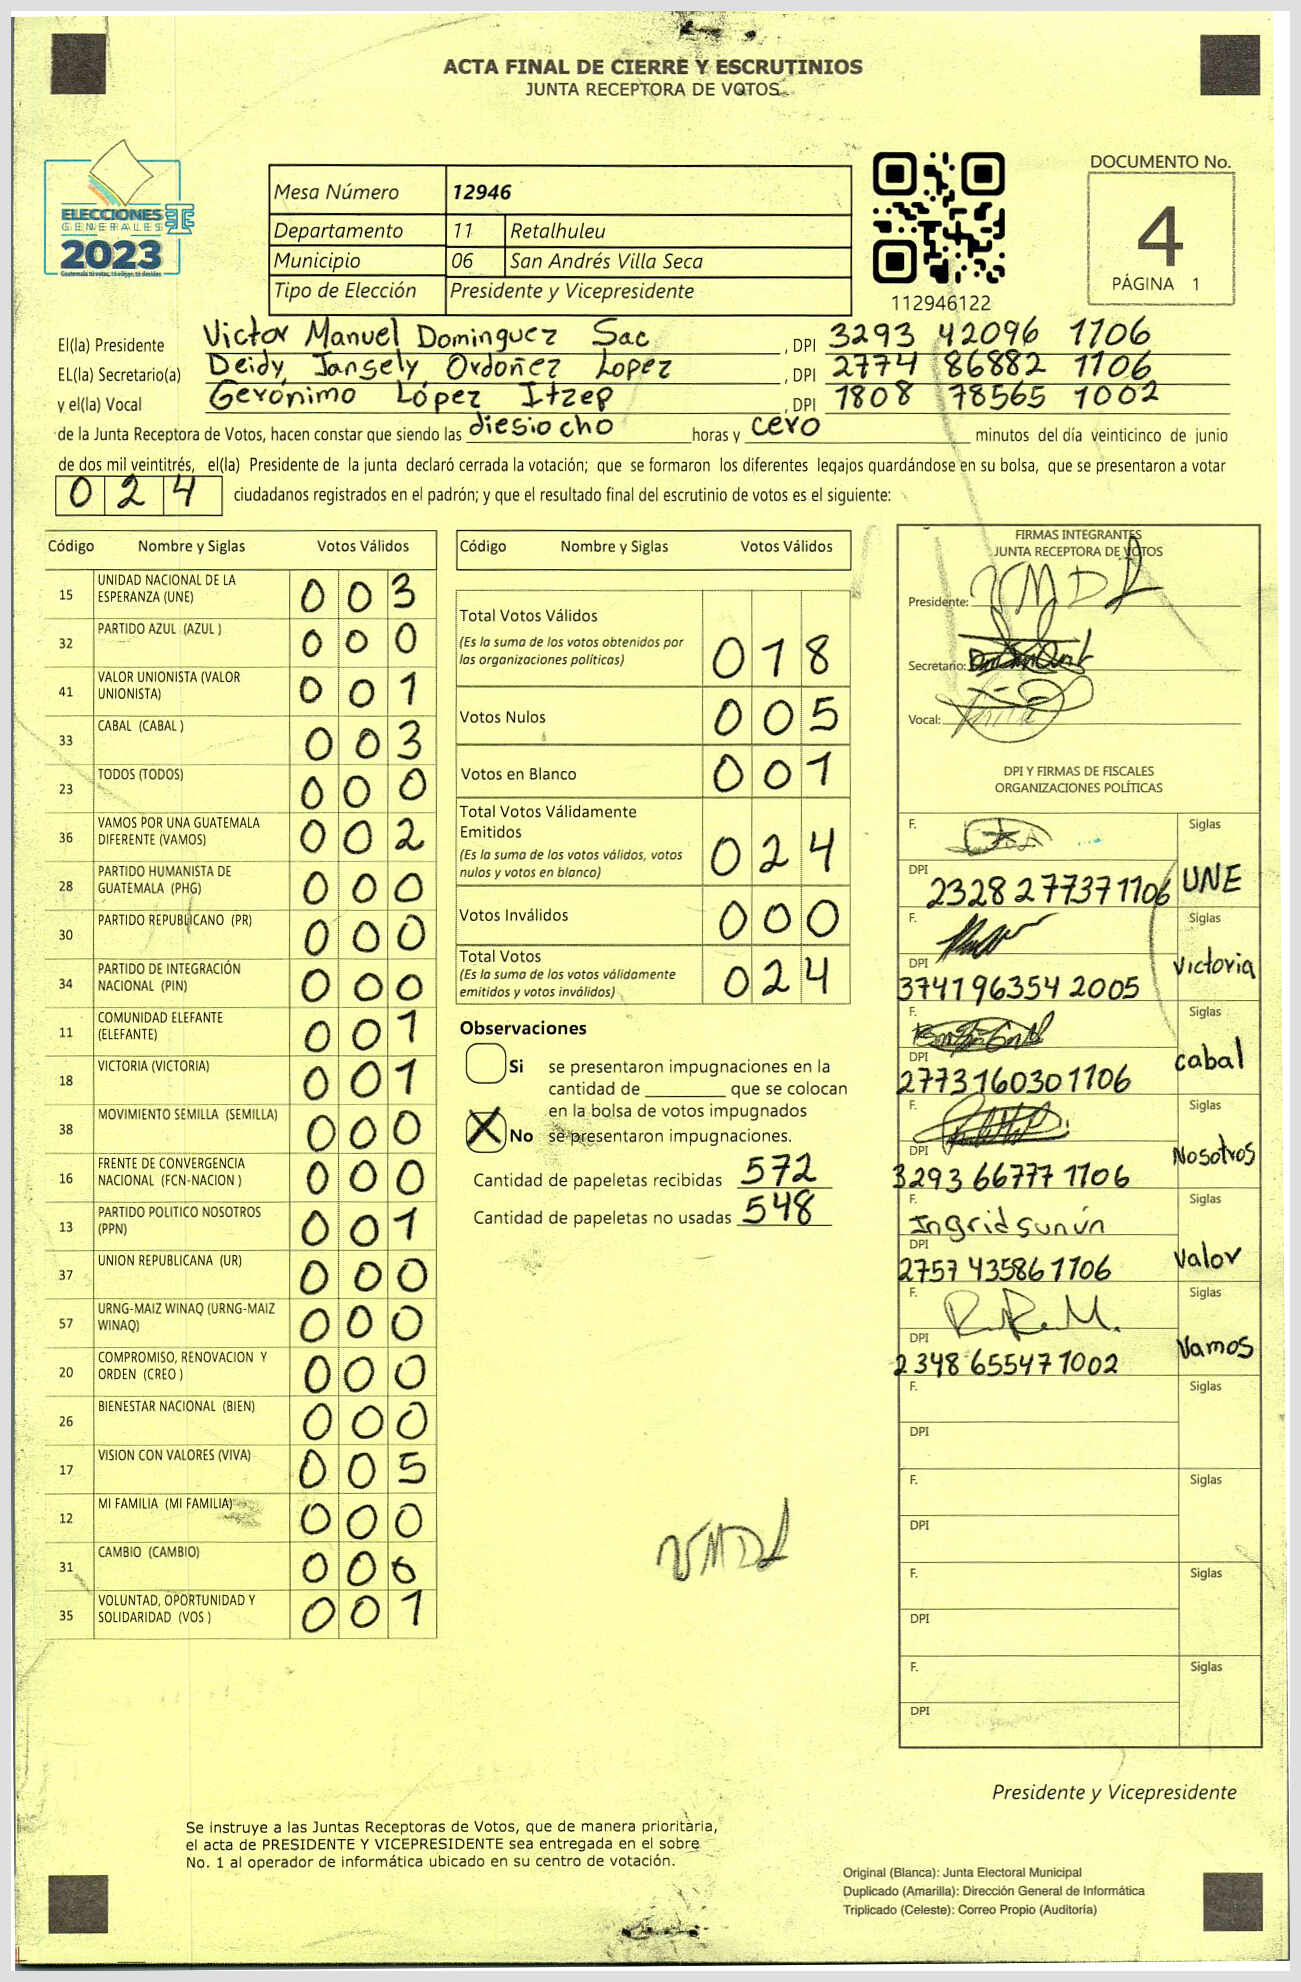 ACTA FINAL DE CIERRE Y ESCRUTINIOS
JUNTA RECEPTORA DE VOTOS
ELECCIONES
GENERALES
2023
Mesa Número 12946
Departamento 11 Retalhuleu
Municipio 06 San Andrés Villa Seca
Tipo de Elección Presidente y Vicepresidente
112946122
DOCUMENTO No.
4
PÁGINA 1
El(la) Presidente Victor Manuel Dominguez Sac , DPI 3293 42096 1106
EL(la) Secretario(a) Deidy Jansely Ordoñez Lopez , DPI 2774 86882 1106
y el(la) Vocal Gerónimo López Itzep , DPI 1808 78565 1002
de la Junta Receptora de Votos, hacen constar que siendo las diesiocho horas y cero minutos del día veinticinco de junio
de dos mil veintitrés, el(la) Presidente de la junta declaró cerrada la votación; que se formaron los diferentes legajos guardándose en su bolsa, que se presentaron a votar
0 2 4 ciudadanos registrados en el padrón; y que el resultado final del escrutinio de votos es el siguiente:
Código Nombre y Siglas Votos Válidos
15 UNIDAD NACIONAL DE LA ESPERANZA (UNE) 0 0 3
32 PARTIDO AZUL (AZUL ) 0 0 0
41 VALOR UNIONISTA (VALOR UNIONISTA) 0 0 1
33 CABAL (CABAL ) 0 0 3
23 TODOS (TODOS) 0 0 0
36 VAMOS POR UNA GUATEMALA DIFERENTE (VAMOS) 0 0 2
28 PARTIDO HUMANISTA DE GUATEMALA (PHG) 0 0 0
30 PARTIDO REPUBLICANO (PR) 0 0 0
34 PARTIDO DE INTEGRACIÓN NACIONAL (PIN) 0 0 0
11 COMUNIDAD ELEFANTE (ELEFANTE) 0 0 1
18 VICTORIA (VICTORIA) 0 0 1
38 MOVIMIENTO SEMILLA (SEMILLA) 0 0 0
16 FRENTE DE CONVERGENCIA NACIONAL (FCN-NACION ) 0 0 0
13 PARTIDO POLITICO NOSOTROS (PPN) 0 0 1
37 UNION REPUBLICANA (UR) 0 0 0
57 URNG-MAIZ WINAQ (URNG-MAIZ WINAQ) 0 0 0
20 COMPROMISO, RENOVACION Y ORDEN (CREO ) 0 0 0
26 BIENESTAR NACIONAL (BIEN) 0 0 0
17 VISION CON VALORES (VIVA) 0 0 5
12 MI FAMILIA (MI FAMILIA) 0 0 0
31 CAMBIO (CAMBIO) 0 0 0
35 VOLUNTAD, OPORTUNIDAD Y SOLIDARIDAD (VOS ) 0 0 1
Código Nombre y Siglas Votos Válidos
Total Votos Válidos
(Es la suma de los votos obtenidos por
las organizaciones políticas) 0 1 8
Votos Nulos 0 0 5
Votos en Blanco 0 0 1
Total Votos Válidamente
Emitidos
(Es la suma de los votos válidos, votos
nulos y votos en blanco) 0 2 4
Votos Inválidos 0 0 0
Total Votos
(Es la suma de los votos válidamente
emitidos y votos inválidos) 0 2 4
Observaciones
Si se presentaron impugnaciones en la
cantidad de ________ que se colocan
en la bolsa de votos impugnados
X No se presentaron impugnaciones.
Cantidad de papeletas recibidas 572
Cantidad de papeletas no usadas 548
VMDS
FIRMAS INTEGRANTES
JUNTA RECEPTORA DE VOTOS
Presidente: VMDS
Secretario:
Vocal:
DPI Y FIRMAS DE FISCALES
ORGANIZACIONES POLÍTICAS
F. Siglas
DPI 2328 27737 1106 UNE
F. Siglas
DPI 3741 96354 2005 Victoria
F. Siglas
DPI 2773 16030 1106 cabal
F.
DPI 3293 66777 1106 Siglas Nosotros
F. Ingrid Sunún Siglas
DPI 2757 43586 1106 Valor
F. Siglas
DPI 2348 65547 1002 Vamos
F. Siglas
DPI
F. Siglas
DPI
F. Siglas
DPI
F. Siglas
DPI
Presidente y Vicepresidente
Se instruye a las Juntas Receptoras de Votos, que de manera prioritaria,
el acta de PRESIDENTE Y VICEPRESIDENTE sea entregada en el sobre
No. 1 al operador de informática ubicado en su centro de votación.
Original (Blanca): Junta Electoral Municipal
Duplicado (Amarilla): Dirección General de Informática
Triplicado (Celeste): Correo Propio (Auditoría)